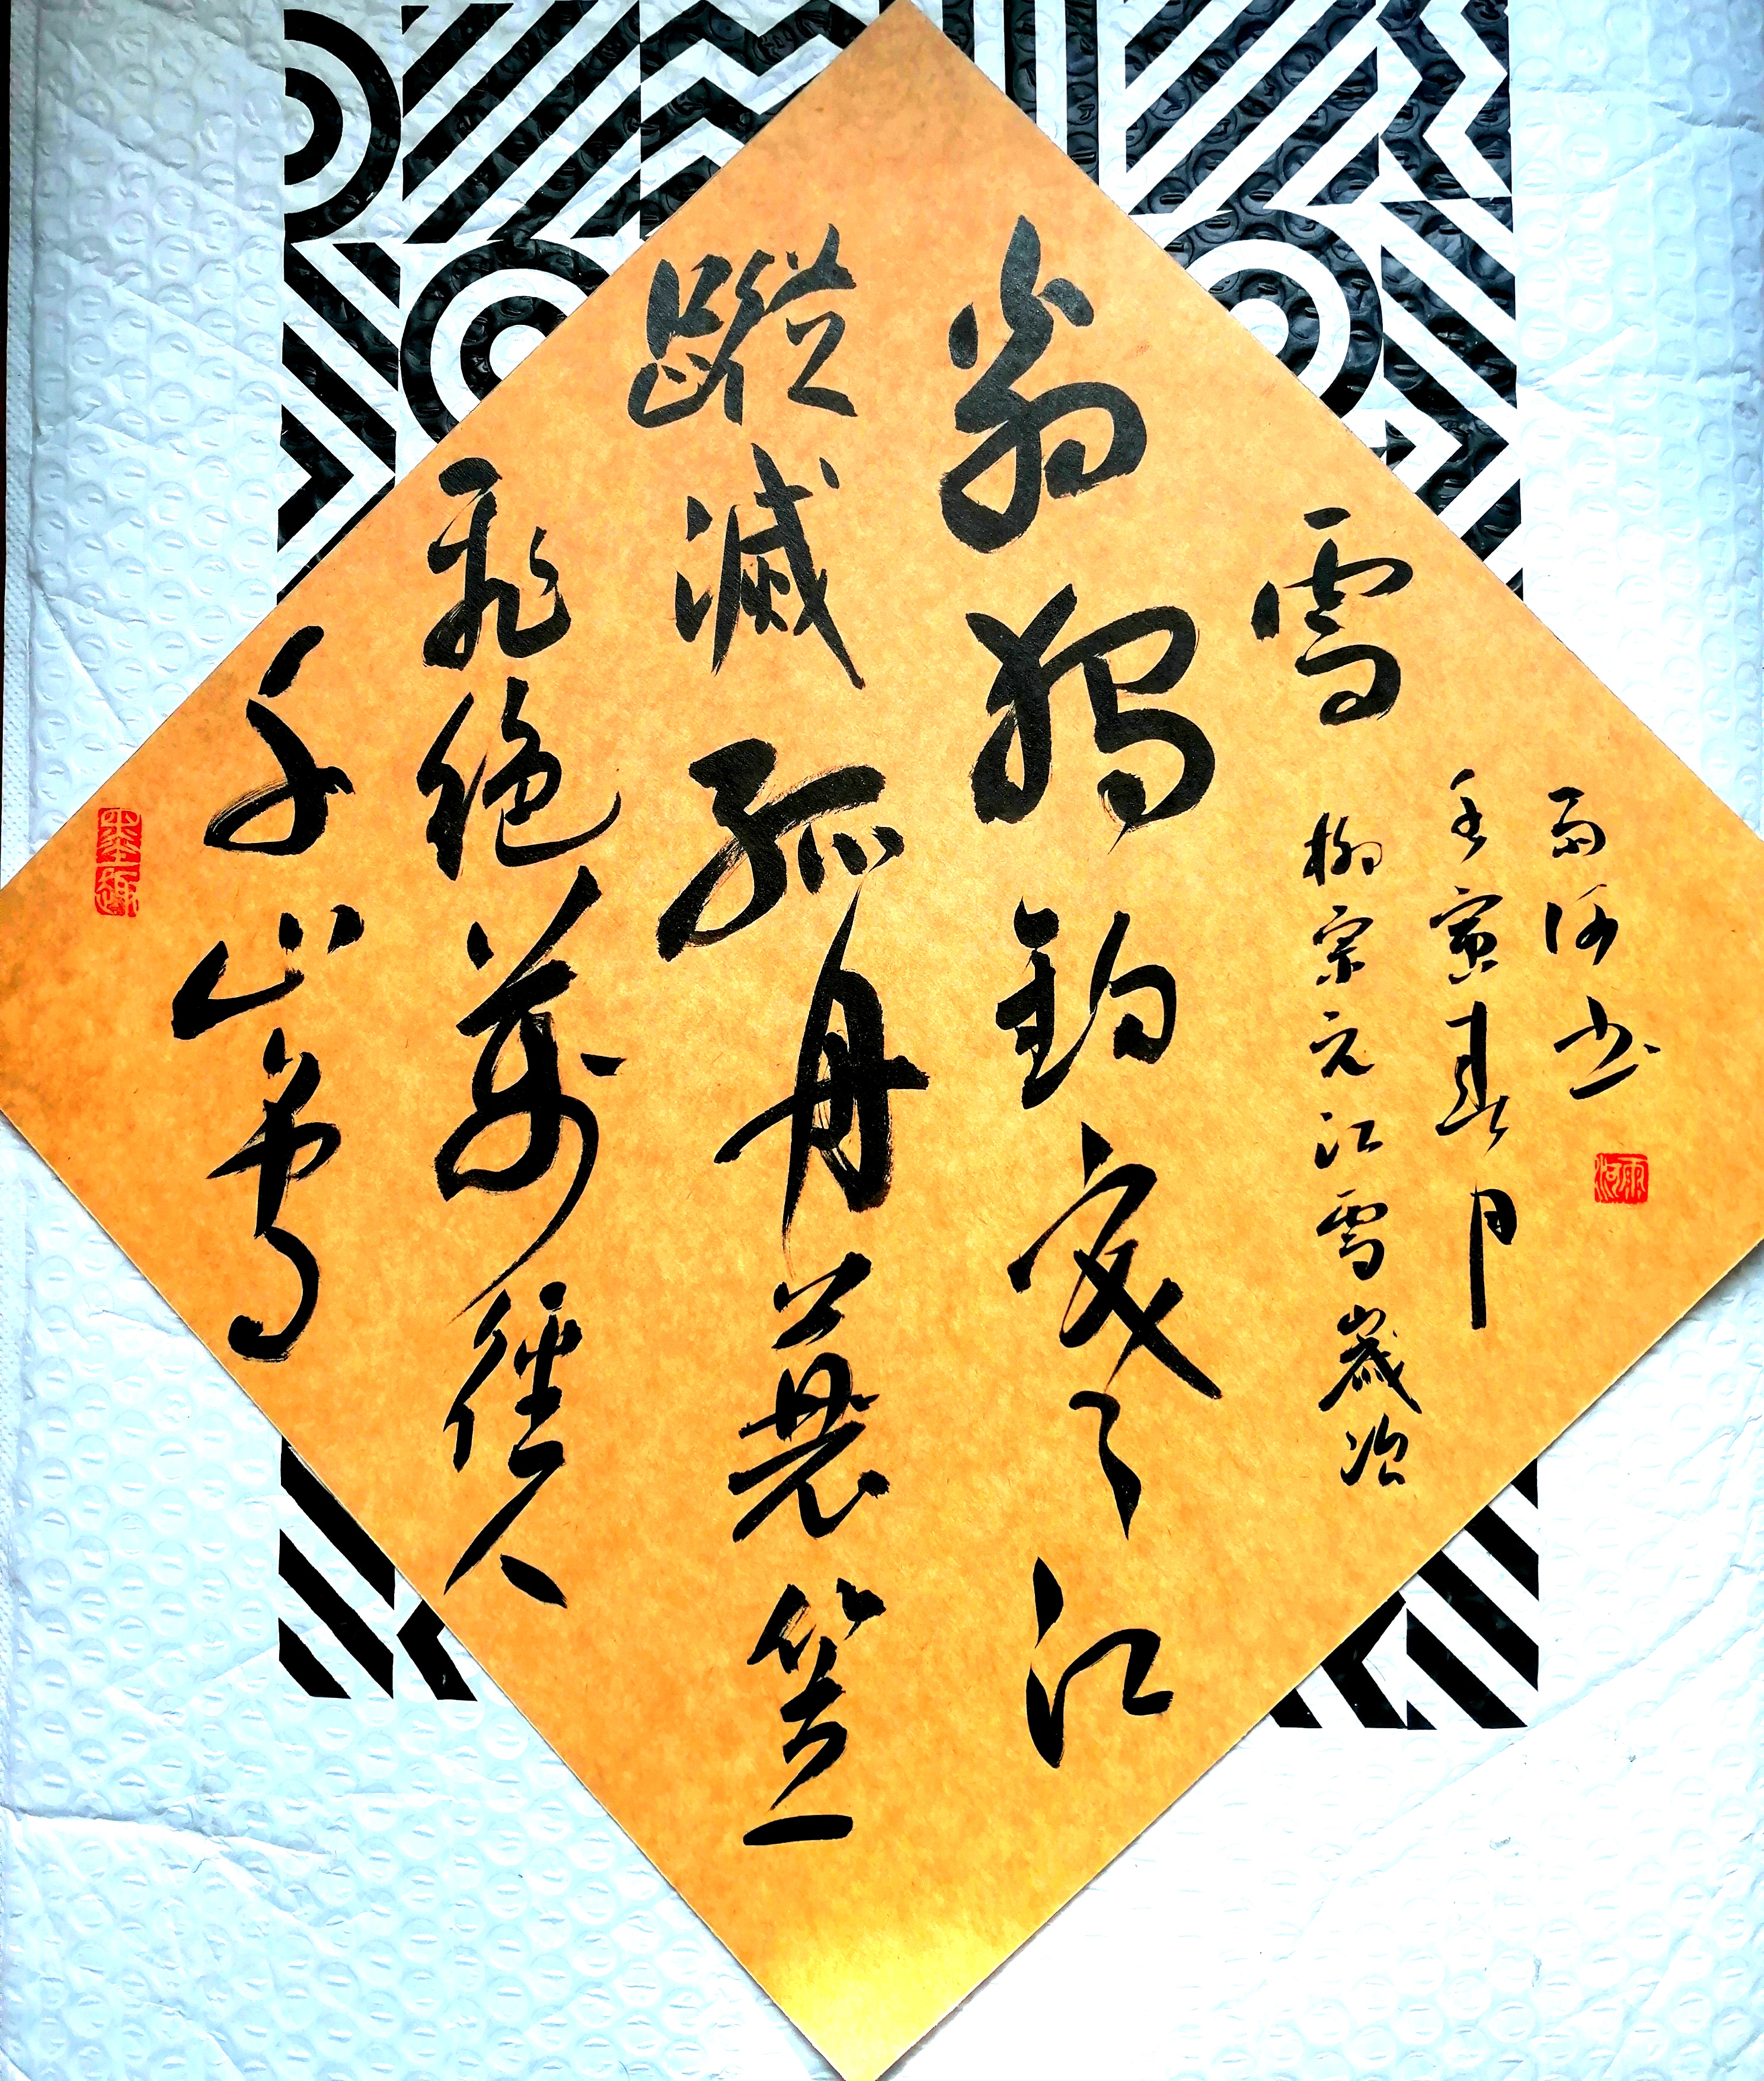 墨趣
千山鳥
飛絶萬徑人
蹤滅孤舟蓑笠
翁獨釣寒江
雪
柳宗元江雪歲次
壬寅春月
雨河书
雨河